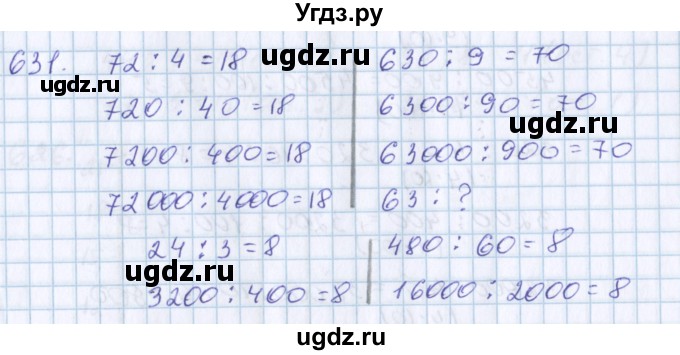 Угдз.ру
631. 72 : 4 = 18
720 : 40 = 18
7200 : 400 = 18
72000 : 4000 = 18
630 : 9 = 70
6300 : 90 = 70
63000 : 900 = 70
63 : ?
24 : 3 = 8
3200 : 400 = 8
480 : 60 = 8
16000 : 2000 = 8
ugdz.ru
ugdz.ru
ugdz.ru
ugdz.ru
ugdz.ru
ugdz.ru
ugdz.ru